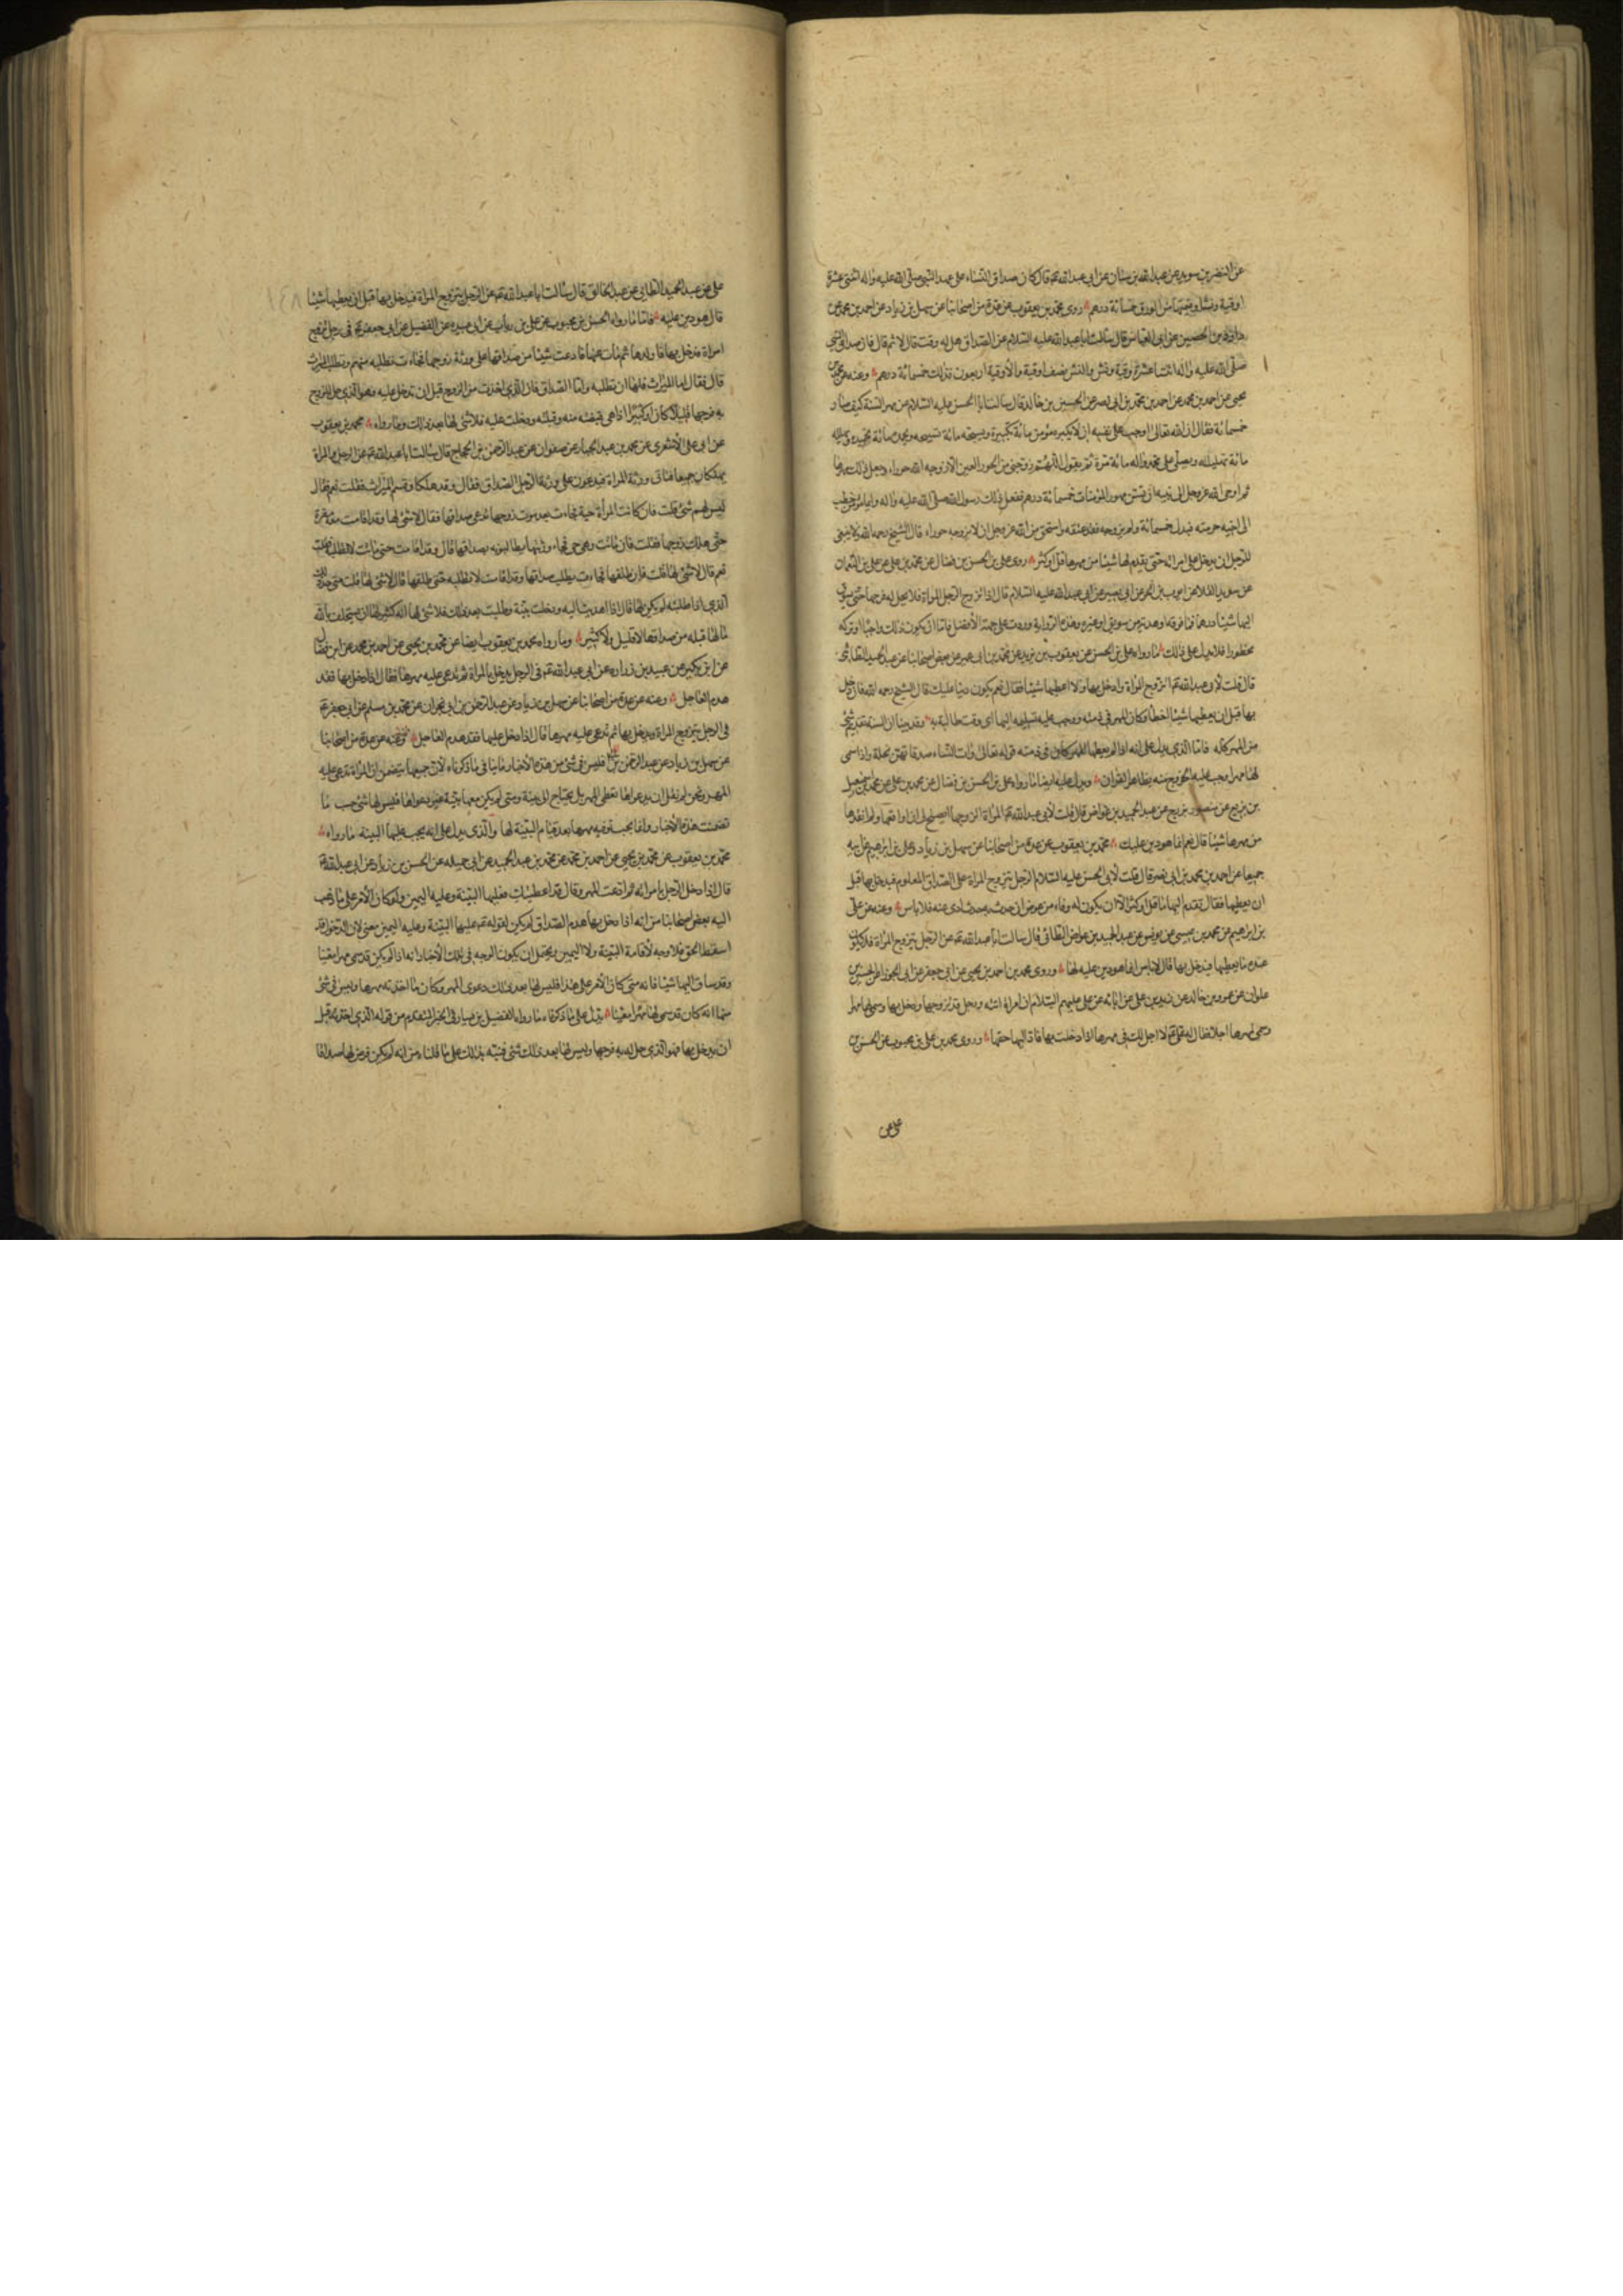 عن النضر بن سويد عن عبد الله بن سنان عن ابي عبد الله ع قال كان صداق النساء على عهد النبي صلى الله عليه واله اثنتي عشرة
اوقية ونشا وقيمتها من الورق خمسمائة درهم روى محمد بن يعقوب عن عدة من اصحابنا عن سهل بن زياد عن احمد بن محمد عن
داود بن الحصين عن ابي العباس قال سالت ابا عبد الله عليه السلام عن الصداق هل له وقت قال لا ثم قال كان صداق النبي
صلى الله عليه واله اثنتا عشرة اوقية ونش والنش نصف اوقية والأوقية اربعون فذلك خمسمائة درهم وعنه عن محمد بن
يحيى عن احمد بن محمد عن احمد بن محمد بن ابي نصر عن الحسين بن خالد قال سالت ابا الحسن عليه السلام عن مهر السنة كيف صار
خمسمائة فقال ان الله تعالى اوجب على نفسه ان لا يكبره مؤمن مائة تكبيرة ويسبحه مائة تسبيحه ويحمده مائة تحميده ويهلله
مائة تهليله ويصلي على محمد واله مائة مرة ثم يقول اللهم زوجني من الحور العين الا زوجه الله حوراء وجعل ذلك مهرها
ثم اوحى الله عز وجل الى نبيه ان يسن مهور المؤمنات خمسمائة درهم ففعل ذلك رسول الله صلى الله عليه واله وايما مؤمن خطب
الى اخيه حرمته فبذل خمسمائة ولم يزوجه فقد عقه واستحق من الله عز وجل ان لا يزوجه حوراء قال الشيخ رحمه الله ولا ينبغي
للرجل ان يدخل على امراته حتى يقدم لها شيئا من مهرها قل او كثر روى علي بن الحسن بن فضال عن محمد بن علي عن علي بن النعمان
عن سويد القلا عن ايوب بن الحر عن ابي بصير عن ابي عبد الله عليه السلام قال اذا تزوج الرجل المراة فلا يحل له فرجها حتى يسوق
اليها شيئا درهما فما فوقه او هدية من سويق او غيره وهذه الرواية وردت على جهة الأفضل فاما ان يكون ذلك واجبا او تركه
محظورا فلا يدل على ذلك ما رواه علي بن الحسن عن يعقوب بن يزيد عن محمد بن ابي عمير عن بعض اصحابنا عن عبد الحميد الطائي
قال قلت لأبي عبد الله ع اتزوج المراة وادخل بها ولا اعطيها شيئا فقال نعم يكون دينا عليك قال الشيخ رحمه الله فان دخل
بها قبل ان يعطيها شيئا اخطأ وكان المهر في ذمته ووجب عليه تسليمه اليها اي وقت طالبته به وقد بينا ان السنة تقديم شئ
من المهر كله فاما الذي يدل على انه اذا لم يعطها المهر كان في ذمته قوله تعالى واتوا النساء صدقاتهن نحلة واذا سمى
لها مهرا وجب عليه الخروج منه بظاهر القران ويدل عليه ايضا ما رواه علي بن الحسن بن فضال عن محمد بن علي عن محمد بن اسمعيل
بن بزيع عن منصور بزرج عن عبد الحميد بن عواض قال قلت لأبي عبد الله ع المرأة اتزوجها ايصلح لي ان اواقعها ولم انقدها
من مهرها شيئا قال نعم انما هو دين عليك محمد بن يعقوب عن عدة من اصحابنا عن سهل بن زياد وعلي بن ابرهيم عن ابيه
جميعا عن احمد بن محمد بن ابي نصر قال قلت لأبي الحسن عليه السلام الرجل يتزوج المراة على الصداق المعلوم فيدخل بها قبل
ان يعطيها فقال تقدم اليها ما قل او كثر الا ان يكون له وفاء من عرض ان حدث به حدث ادى عنه فلا باس وعنه عن علي
بن ابرهيم عن محمد بن عيسى عن يونس عن عبد الحميد بن عواض الطائي قال سالت ابا عبد الله ع عن الرجل يتزوج المرأة فلا يكون
عنده ما يعطيها فيدخل بها قال لا باس انما هو دين عليه لها وروى محمد بن احمد بن يحيى عن ابي جعفر عن ابي الجوزا عن الحسين بن
علوان عن عمرو بن خالد عن زيد بن علي عن ابائه عن علي عليهم السلام ان امراة اتته ورجل قد تزوجها ودخل بها وسمى لها مهرا
وسمى لمهرها اجلا فقال له علي ع لا اجل لك في مهرها اذا دخلت بها فاد اليها حقها وروى محمد بن علي بن محبوب عن الحسن بن
علي عن
١٤٨
علي عن عبد الحميد الطائي عن عبد الخالق قال سالت ابا عبد الله ع عن الرجل يتزوج المراة فيدخل بها قبل ان يعطيها شيئا
قال هو دين عليه فاما ما رواه الحسن بن محبوب عن علي بن رئاب عن ابي عبيده عن الفضيل عن ابي جعفر ع في رجل تزوج
امراة فدخل بها فاولدها ثم مات عنها فادعت شيئا من صداقها على ورثة زوجها فجاءت تطلبه منهم وتطلب الميراث
قال فقال اما الميراث فلها ان تطلبه واما الصداق فان الذي اخذت من الزوج قبل ان تدخل عليه وهو الذي حل للزوج
به فرجها قليلا كان او كثيرا اذا هي قبضته منه وقبلته ودخلت عليه فلا شئ لها بعد ذلك وما رواه محمد بن يعقوب
عن ابي علي الأشعري عن محمد بن عبد الجبار عن صفوان عن عبد الرحمن بن الحجاج قال سالت ابا عبد الله ع عن الرجل والمراة
يهلكان جميعا فتاتي ورثة المراة فيدعون على ورثة الرجل الصداق فقال وقد هلكا وقسم الميراث فقلت نعم فقال
ليس لهم شئ قلت فان كانت المرأة حية فجاءت بعد موت زوجها تدعي صداقها فقال لا شئ لها وقد اقامت معه مقرة
حتى هلك زوجها فقلت فان ماتت وهو حي فجاء ورثتها يطالبونه بصداقها قال وقد اقامت حتى ماتت لا تطلبه فقلت
نعم قال لا شئ لها قلت فان طلقها فجاءت تطلب صداقها قال وقد اقامت لا تطلبه حتى طلقها قال لا شئ لها قلت متى حد ذلك
الذي اذا طلبته لم يكن لها قال اذا اهديت اليه ودخلت بيته وطلبت بعد ذلك فلا شئ لها انه كثير لها ان يستحلف بالله
ما لها قبله من صداقها لا قليل ولا كثير وما رواه محمد بن يعقوب ايضا عن محمد بن يحيى عن احمد بن محمد عن ابن فضال
عن ابن بكير عن عبيد بن زراره عن ابي عبد الله ع في الرجل يدخل بالمراة ثم تدعي عليه مهرها فقال اذا دخل بها فقد
هدم العاجل وعنه عن عدة من اصحابنا عن سهل بن زياد عن عبد الرحمن بن ابي نجران عن محمد بن مسلم عن ابي جعفر ع
في الرجل يتزوج المراة ويدخل بها ثم تدعي عليه مهرها قال اذا دخل عليها فقد هدم العاجل وعنه عن عدة من اصحابنا
عن سهل بن زياد عن عبد الرحمن فليس في شئ من هذه الأخبار ما ينافي ما ذكرناه لأن جميعها يتضمن ان المراة تدعي عليه
المهر ونحن لم نقل ان بدعواها تعطى المهر بل يحتاج الى بينة ومتى لم يكن معها بينة غير دعواها فليس لها شئ حسب ما
تضمنت هذه الأخبار وانما يجب توفيه مهرها بعد قيام البينة لها والذي يدل على انه يجب عليها البينه ما رواه
محمد بن يعقوب عن محمد بن يحيى عن احمد بن محمد عن محمد بن عبد الحميد عن ابي جميله عن الحسن بن زياد عن ابي عبد الله ع
قال اذا دخل الرجل بامراته ثم ادعت المهر وقال قد اعطيتك فعليها البينة وعليه اليمين ولو كان الأمر على ما ذهب
اليه بعض اصحابنا من انه اذا دخل بها هدم الصداق لم يكن لقوله ع عليها البينة وعليه اليمين معنى لان الدخول قد
اسقط الحق فلا وجه لأقامة البينة ولا اليمين ويحتمل ان يكون الوجه في تلك الأخبار انه اذا لم يكن قد سمى مهرا معينا
وقد ساق اليها شيئا فانه متى كان الأمر على هذا فليس لها بعد ذلك دعوى المهر وكان ما اخذته مهرها وليس في شئ
منها انه كان قد سمى لها مهرا معينا يدل على ما ذكرناه ما رواه الفضيل بن يسار في الخبر المتقدم من قوله الذي اخذته قبل
ان يدخل بها فهو الذي حل له به فرجها وليس لها بعد ذلك شئ فنبه بذلك على ما قلناه من انه لم يكن فرض لها صداقا